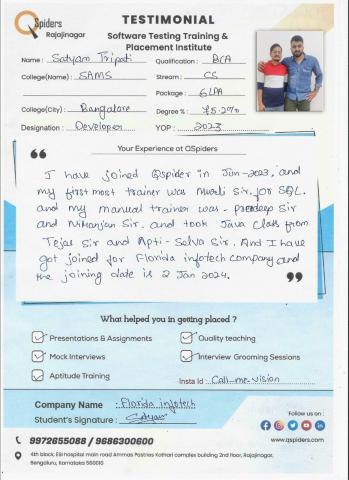 QSpiders
Rajajinagar
TESTIMONIAL
Software Testing Training &
Placement Institute
Name : Satyam Tripati
Qualification : BCA
College(Name) : SAMS
Stream : CS
Package : 6LPA
College(City) : Bangalore
Degree % : 75.2%
Designation : Developer
YOP : 2023
Your Experience at QSpiders
I have joined Qspider in Jun-2023, and
my first most trainer was Murli Sir. for SQL.
and my manual trainer was - Pradeep Sir
and Niranjan Sir. and took Java Class from
Tejas Sir and Apti - Selva Sir. And I have
got joined for Florida infotech company and
the joining date is 2 Jan 2024.
What helped you in getting placed ?
Presentations & Assignments
Quality teaching
Mock Interviews
Interview Grooming Sessions
Aptitude Training
Insta Id : Call-me-vision
Company Name : Florida infotech
Student's Signature : Satyam
Follow us on :
9972655088 / 9686300600
www.qspiders.com
4th block, ESI hospital main road Ammas Pastries Kothari complex building 2nd floor, Rajajinagar,
Bengaluru, Karnataka 560010